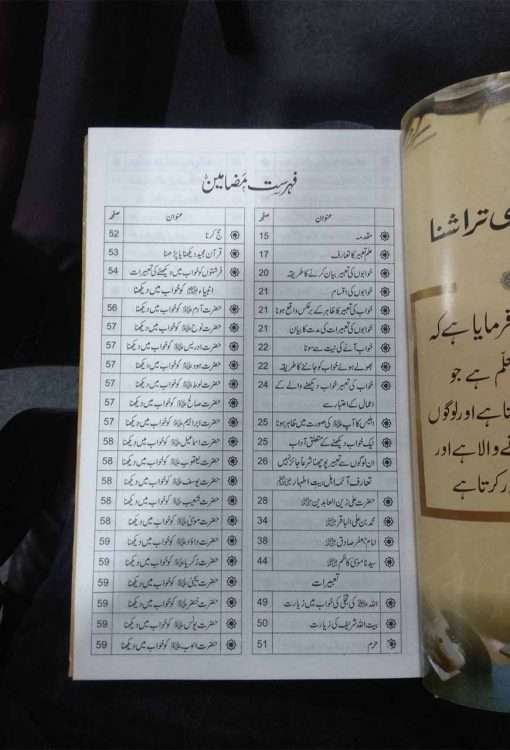 فہرست مضامین
عنوان صفحہ
مقدمہ 15
علم تعبیر کا تعارف 17
خوابوں کی تعبیر بیان کرنے کا طریقہ 20
خوابوں کی اقسام 21
خواب کی تعبیر کا ظاہر کے برعکس واقع ہونا 21
خوابوں کی تعبیرات کی مدت کا بیان 21
خواب آنے کی نیت سے سونا 22
بھولے ہوئے خواب کو جاننے کا طریقہ 22
خواب کی تعبیر خواب دیکھنے والے کے 24
اعمال کے اعتبار سے
ابلیس کا آپ ﷺ کی صورت میں ظاہر ہونا 25
نیک خواب دیکھنے کے متعلق آداب 25
ان لوگوں سے تعبیر پوچھنا شرعاً جائز نہیں 26
تعارف آئمہ اہل بیت اطہار
حضرت علی زین العابدین 28
محمد بن علی الباقر 34
امام جعفر صادق 38
سیدنا موسیٰ کاظم 44
تعبیرات
اللہ کی تجلی کی خواب میں زیارت 49
بیت اللہ شریف کی زیارت 50
حرم 51
عنوان صفحہ
حج کرنا 52
قرآن مجید دیکھنا یا پڑھنا 53
فرشتوں کو خواب میں دیکھنے کی تعبیرات 54
انبیاء کو خواب میں دیکھنا
حضرت آدم کو خواب میں دیکھنا 56
حضرت نوح کو خواب میں دیکھنا 57
حضرت ادریس کو خواب میں دیکھنا 57
حضرت ہود کو خواب میں دیکھنا 57
حضرت لوط کو خواب میں دیکھنا 57
حضرت صالح کو خواب میں دیکھنا 57
حضرت ابراہیم کو خواب میں دیکھنا 57
حضرت اسماعیل کو خواب میں دیکھنا 58
حضرت یعقوب کو خواب میں دیکھنا 58
حضرت یوسف کو خواب میں دیکھنا 58
حضرت شعیب کو خواب میں دیکھنا 58
حضرت موسیٰ کو خواب میں دیکھنا 58
حضرت داؤد کو خواب میں دیکھنا 59
حضرت زکریا کو خواب میں دیکھنا 59
حضرت یحییٰ کو خواب میں دیکھنا 59
حضرت خضر کو خواب میں دیکھنا 59
حضرت یونس کو خواب میں دیکھنا 59
حضرت ایوب کو خواب میں دیکھنا 59
ی تراشنا
فرمایا ہے کہ
معلّم ہے جو
تا ہے اور لوگوں
نے والا ہے اور
ور کرتا ہے